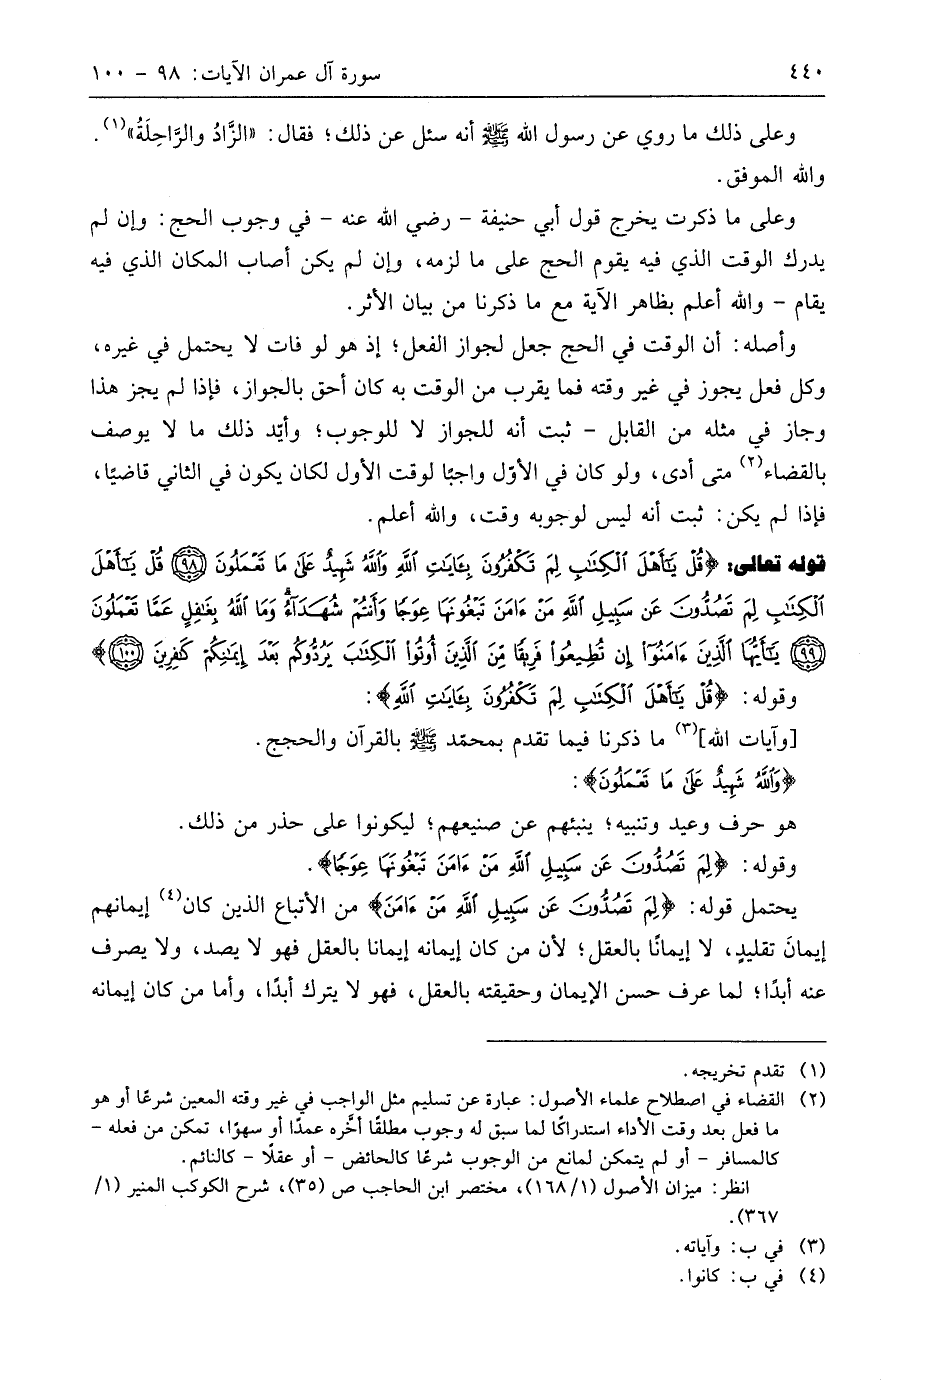 ٤٤٠ سورة آل عمران الآيات: ٩٨ - ١٠٠
وعلى ذلك ما روي عن رسول الله ﷺ أنه سئل عن ذلك؛ فقال: «الزَّادُ والرَّاحِلَةُ»(١).
والله الموفق.
وعلى ما ذكرت يخرج قول أبي حنيفة - رضي الله عنه - في وجوب الحج: وإن لم
يدرك الوقت الذي فيه يقوم الحج على ما لزمه، وإن لم يكن أصاب المكان الذي فيه
يقام - والله أعلم بظاهر الآية مع ما ذكرنا من بيان الأثر.
وأصله: أن الوقت في الحج جعل لجواز الفعل؛ إذ هو لو فات لا يحتمل في غيره،
وكل فعل يجوز في غير وقته فما يقرب من الوقت به كان أحق بالجواز، فإذا لم يجز هذا
وجاز في مثله من القابل - ثبت أنه للجواز لا للوجوب؛ وأيّد ذلك ما لا يوصف
بالقضاء(٢) متى أدى، ولو كان في الأوّل واجبًا لوقت الأول لكان يكون في الثاني قاضيًا،
فإذا لم يكن: ثبت أنه ليس لوجوبه وقت، والله أعلم.
قوله تعالى: ﴿قُلْ يَٰٓأَهْلَ ٱلْكِتَٰبِ لِمَ تَكْفُرُونَ بِـَٔايَٰتِ ٱللَّهِ وَٱللَّهُ شَهِيدٌ عَلَىٰ مَا تَعْمَلُونَ ﴿٩٨﴾ قُلْ يَٰٓأَهْلَ
ٱلْكِتَٰبِ لِمَ تَصُدُّونَ عَن سَبِيلِ ٱللَّهِ مَنْ ءَامَنَ تَبْغُونَهَا عِوَجًا وَأَنتُمْ شُهَدَآءُ ۗ وَمَا ٱللَّهُ بِغَٰفِلٍ عَمَّا تَعْمَلُونَ
﴿٩٩﴾ يَٰٓأَيُّهَا ٱلَّذِينَ ءَامَنُوٓا۟ إِن تُطِيعُوا۟ فَرِيقًا مِّنَ ٱلَّذِينَ أُوتُوا۟ ٱلْكِتَٰبَ يَرُدُّوكُم بَعْدَ إِيمَٰنِكُمْ كَٰفِرِينَ ﴿١٠٠﴾﴾
وقوله: ﴿قُلْ يَٰٓأَهْلَ ٱلْكِتَٰبِ لِمَ تَكْفُرُونَ بِـَٔايَٰتِ ٱللَّهِ﴾:
[وآيات الله](٣) ما ذكرنا فيما تقدم بمحمّد ﷺ بالقرآن والحجج.
﴿وَٱللَّهُ شَهِيدٌ عَلَىٰ مَا تَعْمَلُونَ﴾:
هو حرف وعيد وتنبيه؛ ينبئهم عن صنيعهم؛ ليكونوا على حذر من ذلك.
وقوله: ﴿لِمَ تَصُدُّونَ عَن سَبِيلِ ٱللَّهِ مَنْ ءَامَنَ تَبْغُونَهَا عِوَجًا﴾.
يحتمل قوله: ﴿لِمَ تَصُدُّونَ عَن سَبِيلِ ٱللَّهِ مَنْ ءَامَنَ﴾ من الأتباع الذين كان(٤) إيمانهم
إيمانَ تقليدٍ، لا إيمانًا بالعقل؛ لأن من كان إيمانه إيمانا بالعقل فهو لا يصد، ولا يصرف
عنه أبدًا؛ لما عرف حسن الإيمان وحقيقته بالعقل، فهو لا يترك أبدًا، وأما من كان إيمانه
(١) تقدم تخريجه.
(٢) القضاء في اصطلاح علماء الأصول: عبارة عن تسليم مثل الواجب في غير وقته المعين شرعًا أو هو
ما فعل بعد وقت الأداء استدراكًا لما سبق له وجوب مطلقًا أخَّره عمدًا أو سهوًا، تمكن من فعله -
كالمسافر - أو لم يتمكن لمانع من الوجوب شرعًا كالحائض - أو عقلًا - كالنائم.
انظر: ميزان الأصول (١/١٦٨)، مختصر ابن الحاجب ص (٣٥)، شرح الكوكب المنير (١/
٣٦٧).
(٣) في ب: وآياته.
(٤) في ب: كانوا.